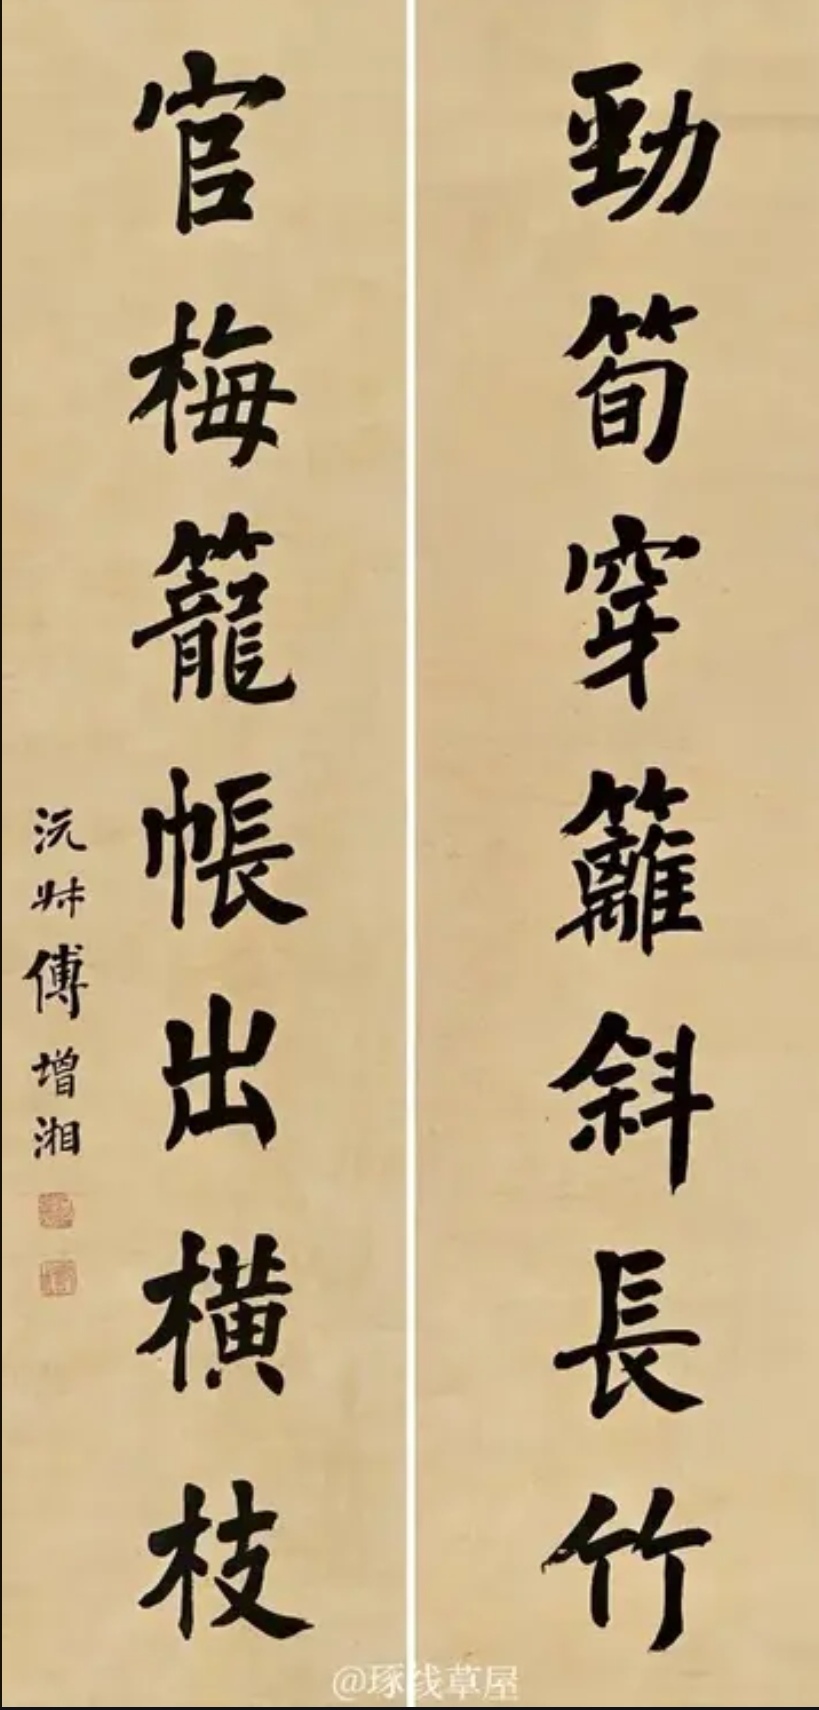 勁筍穿籬斜長竹
官梅籠帳出橫枝
沅叔傅增湘
@琢线草屋